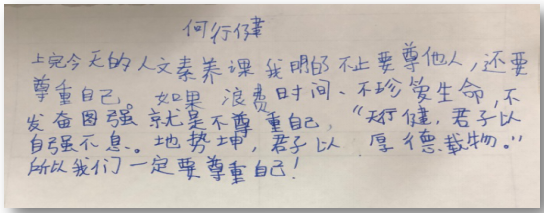 何行健
上完今天的人文素养课我明白不止要尊他人,还要
尊重自己。如果浪费时间、不珍爱生命,不
发奋图强就是不尊重自己,“天行健,君子以
自强不息。地势坤,君子以厚德载物。”
所以我们一定要尊重自己!